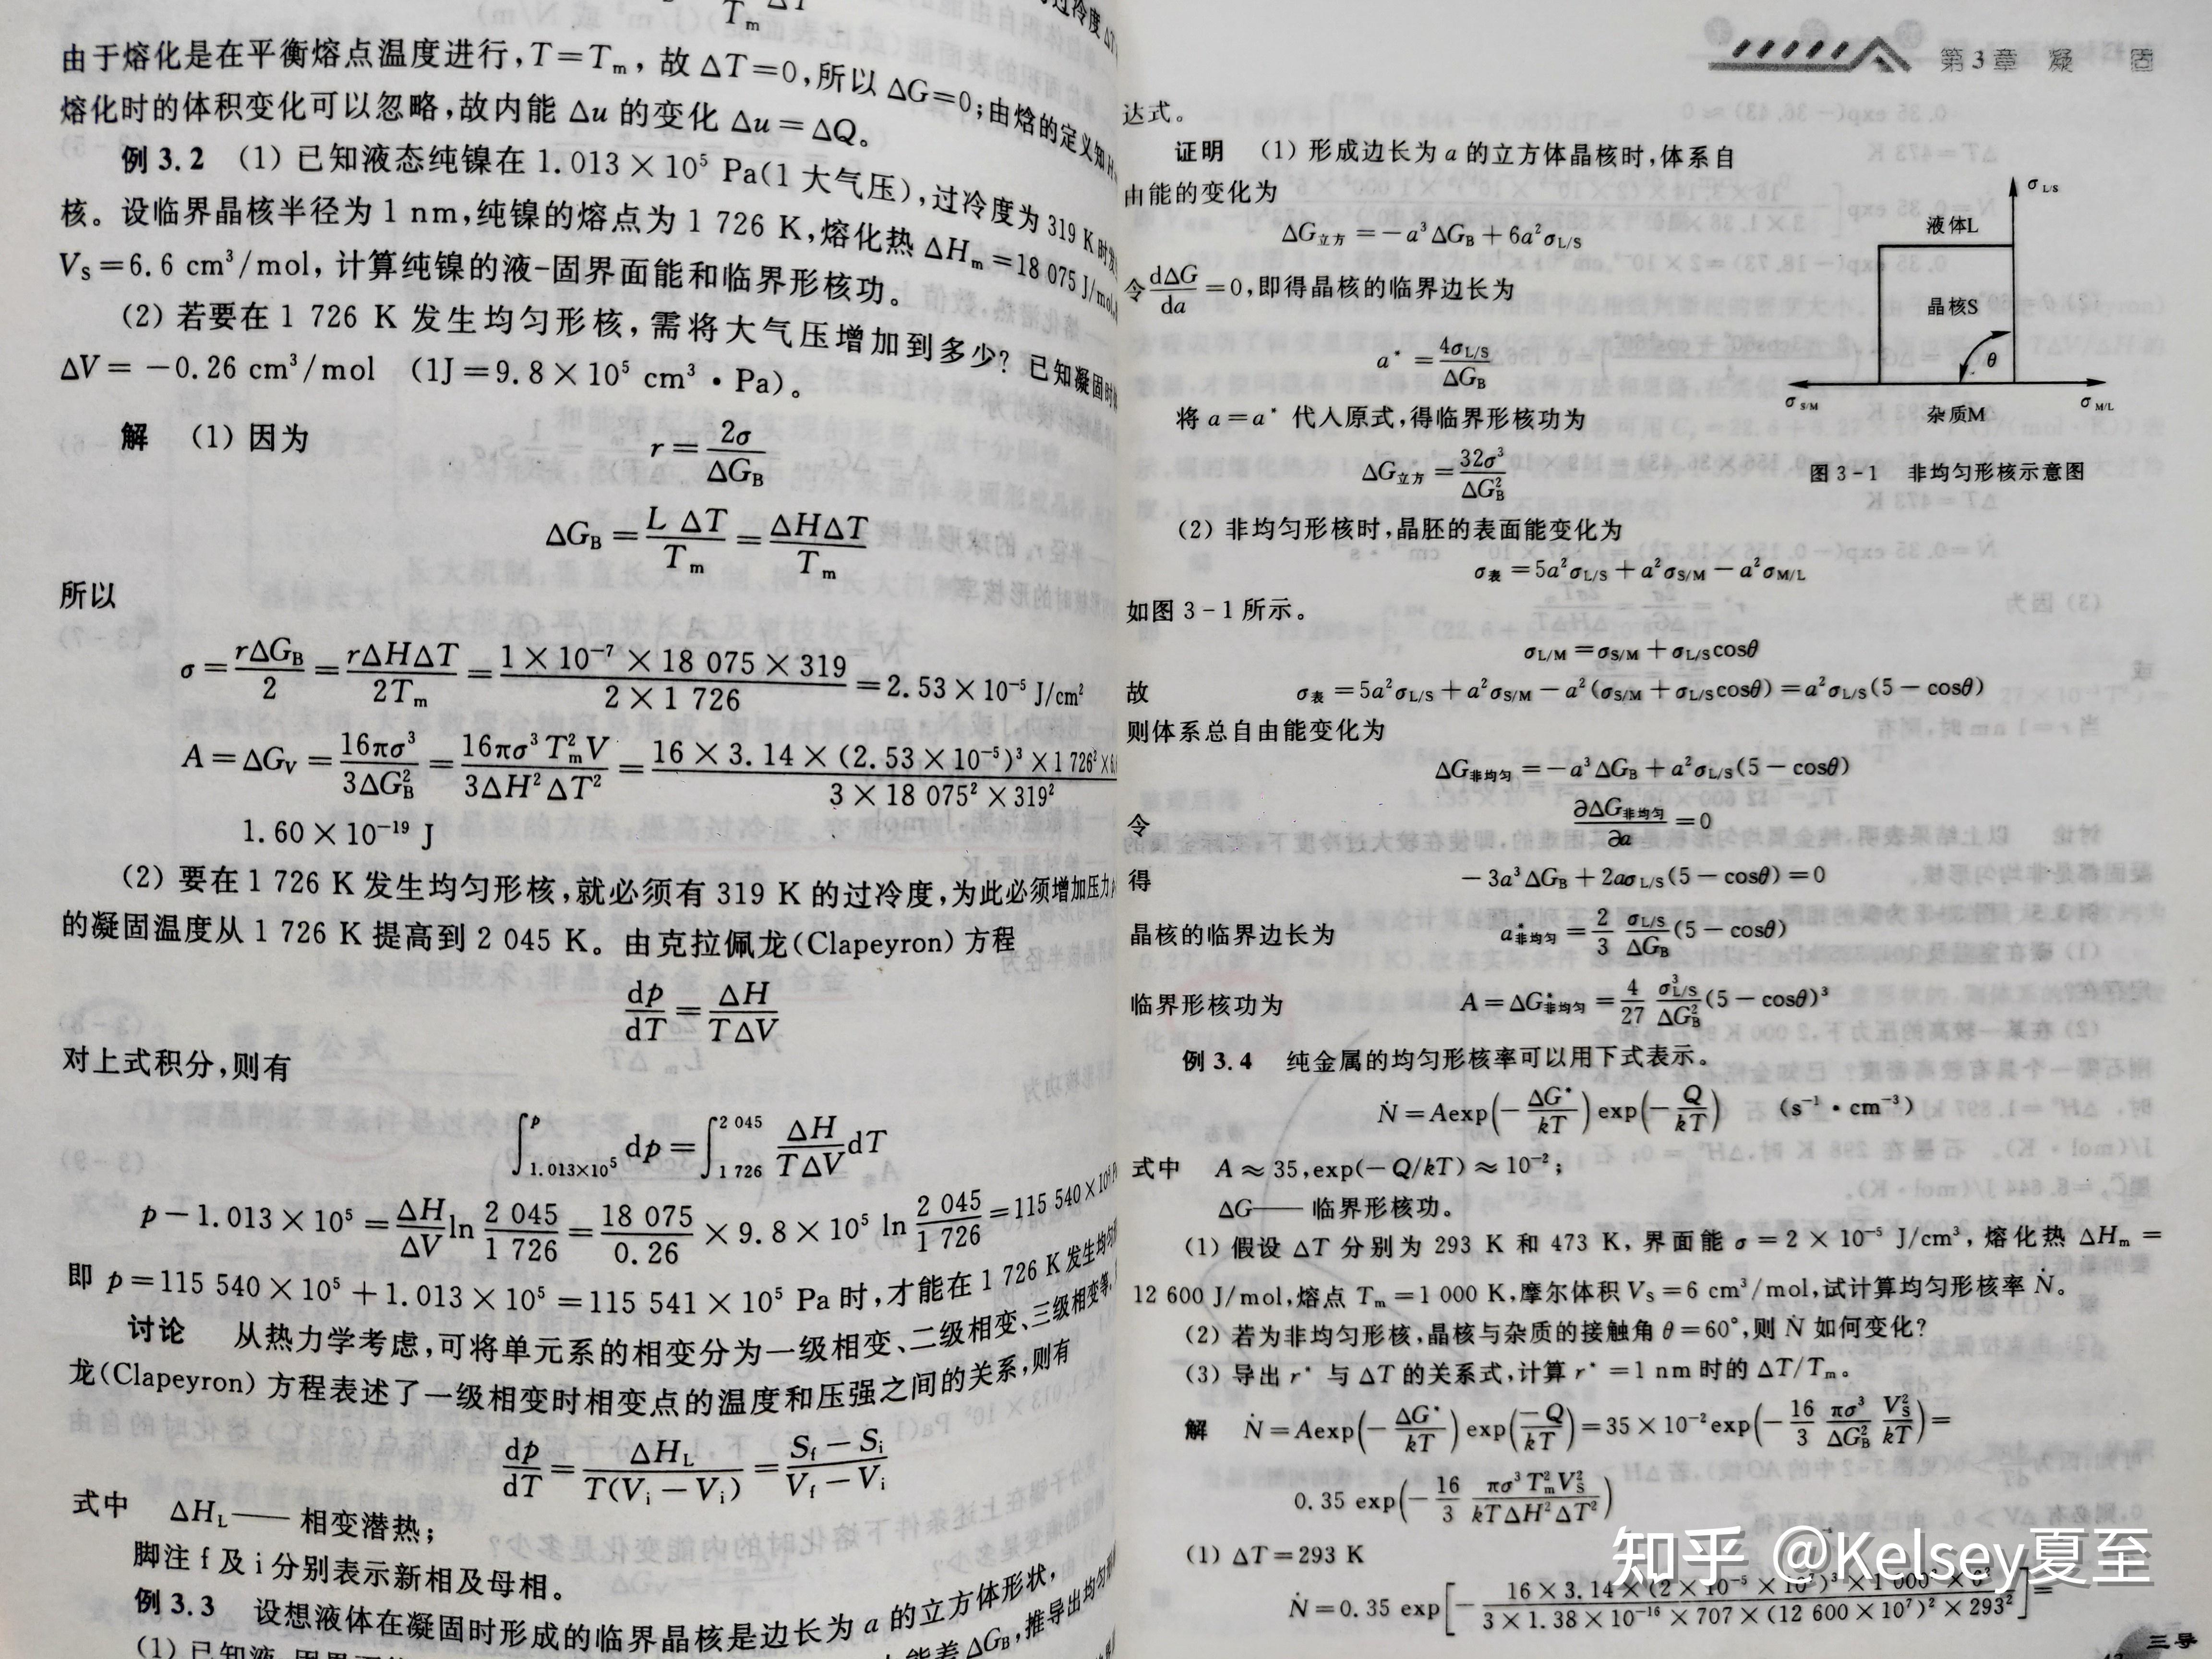 由于熔化是在平衡熔点温度进行,T=Tₘ,故 ΔT=0,所以 ΔG=0;由焓的定义知
熔化时的体积变化可以忽略,故内能 Δu 的变化 Δu=ΔQ。
例 3.2 (1) 已知液态纯镍在 1.013×10⁵ Pa(1 大气压),过冷度为 319 K 时
核。设临界晶核半径为 1 nm,纯镍的熔点为 1 726 K,熔化热 ΔHₘ=18 075 J/mol,
V_S=6.6 cm³/mol,计算纯镍的液-固界面能和临界形核功。
(2) 若要在 1 726 K 发生均匀形核,需将大气压增加到多少? 已知凝固时
ΔV=-0.26 cm³/mol (1J=9.8×10⁵ cm³·Pa)。
解 (1) 因为 r=2σ/ΔG_B
ΔG_B=L ΔT/Tₘ=ΔHΔT/Tₘ
所以
σ=rΔG_B/2=rΔHΔT/2Tₘ=(1×10⁻⁷×18 075×319)/(2×1 726)=2.53×10⁻⁵ J/cm²
A=ΔG_V=16πσ³/3ΔG_B²=16πσ³Tₘ²V/3ΔH²ΔT²=16×3.14×(2.53×10⁻⁵)³×1 726²×/3×18 075²×319²
1.60×10⁻¹⁹ J
(2) 要在 1 726 K 发生均匀形核,就必须有 319 K 的过冷度,为此必须增加压力
的凝固温度从 1 726 K 提高到 2 045 K。由克拉佩龙(Clapeyron)方程
dp/dT=ΔH/TΔV
对上式积分,则有
∫_{1.013×10⁵}^{p} dp=∫_{1 726}^{2 045} ΔH/TΔV dT
p-1.013×10⁵=ΔH/ΔV ln 2 045/1 726=18 075/0.26×9.8×10⁵ ln 2 045/1 726=115 540×10⁵
即 p=115 540×10⁵+1.013×10⁵=115 541×10⁵ Pa 时,才能在 1 726 K 发生均匀
讨论 从热力学考虑,可将单元系的相变分为一级相变、二级相变、三级相变等,
龙(Clapeyron)方程表述了一级相变时相变点的温度和压强之间的关系,则有
dp/dT=ΔH_L/T(V_i-V_i)=(S_f-S_i)/(V_f-V_i)
式中 ΔH_L—— 相变潜热;
脚注 f 及 i 分别表示新相及母相。
例 3.3 设想液体在凝固时形成的临界晶核是边长为 a 的立方体形状,
(1) 已知液 能差 ΔG_B,推导出均匀
第 3 章 凝 固
达式。
证明 (1) 形成边长为 a 的立方体晶核时,体系自
由能的变化为
ΔG立方=-a³ΔG_B+6a²σ_L/S
令 dΔG/da=0,即得晶核的临界边长为
a*=4σ_L/S/ΔG_B
将 a=a* 代入原式,得临界形核功为
ΔG立方=32σ³/ΔG_B²
σ_L/S
液体L
晶核S
θ
σ_S/M
σ_M/L
杂质M
图 3-1 非均匀形核示意图
(2) 非均匀形核时,晶胚的表面能变化为
σ表=5a²σ_L/S+a²σ_S/M-a²σ_M/L
如图 3-1 所示。
σ_L/M=σ_S/M+σ_L/S cosθ
故 σ表=5a²σ_L/S+a²σ_S/M-a²(σ_S/M+σ_L/S cosθ)=a²σ_L/S(5-cosθ)
则体系总自由能变化为
ΔG非均匀=-a³ΔG_B+a²σ_L/S(5-cosθ)
令 ∂ΔG非均匀/∂a=0
得 -3a³ΔG_B+2aσ_L/S(5-cosθ)=0
晶核的临界边长为 a*非均匀=2/3 σ_L/S/ΔG_B(5-cosθ)
临界形核功为 A=ΔG*非均匀=4/27 σ³_L/S/ΔG_B²(5-cosθ)³
例 3.4 纯金属的均匀形核率可以用下式表示。
Ṅ=Aexp(-ΔG*/kT)exp(-Q/kT) (s⁻¹·cm⁻³)
式中 A≈35,exp(-Q/kT)≈10⁻²;
ΔG—— 临界形核功。
(1) 假设 ΔT 分别为 293 K 和 473 K,界面能 σ=2×10⁻⁵ J/cm³,熔化热 ΔHₘ=
12 600 J/mol,熔点 Tₘ=1 000 K,摩尔体积 V_S=6 cm³/mol,试计算均匀形核率 Ṅ。
(2) 若为非均匀形核,晶核与杂质的接触角 θ=60°,则 Ṅ 如何变化?
(3) 导出 r* 与 ΔT 的关系式,计算 r*=1 nm 时的 ΔT/Tₘ。
解 Ṅ=Aexp(-ΔG*/kT)exp(-Q/kT)=35×10⁻²exp(-16/3 πσ³/ΔG_B² V_S²/kT)=
0.35 exp(-16/3 πσ³Tₘ²V_S²/kTΔH²ΔT²)
(1) ΔT=293 K
Ṅ=0.35 exp[-16×3.14×(2×10⁻⁵×10⁷)³×1 000²×6²/3×1.38×10⁻¹⁶×707×(12 600×10⁷)²×293²]=
知乎 @Kelsey夏至
三导